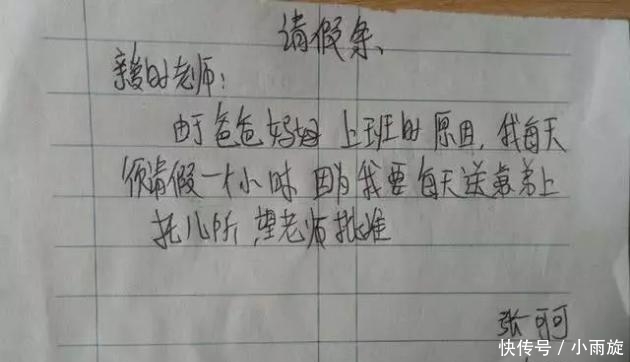 请假条
亲爱的老师:
由于爸爸妈妈上班的原因,我每天
须请假一个小时因为我要每天送弟弟上
托儿所,望老师批准
张可可
快传号 / 小雨旋